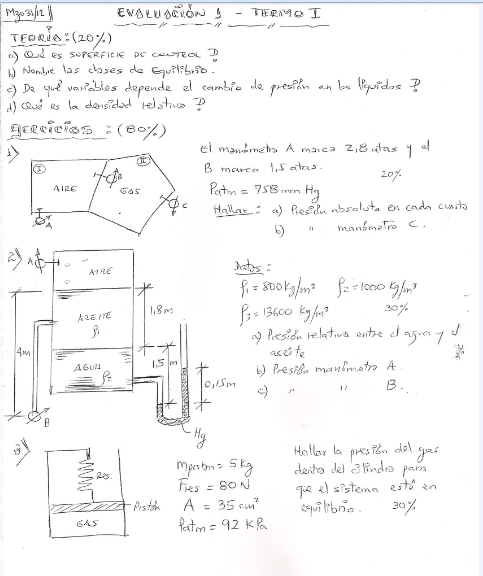 Mzo 31/12
EVALUACIÓN 1 - TERMO I
TEORIA: (20%)
a) Qué es SUPERFICIE DE CONTROL ?
b) Nombre las clases de Equilibrio.
c) De qué variables depende el cambio de presión en los líquidos ?
d) Qué es la densidad relativa ?
EJERCICIOS: (80%)
1)
I
II
AIRE
GAS
A
B
C
El manómetro A marca 2,8 atas y el
B marca 1,5 atas.
20%
Patm = 758 mm Hg
Hallar: a) Presión absoluta en cada cuarto
b) " manómetro C.
2)
A
AIRE
ACEITE
ρ1
AGUA
ρ2
1,8m
4m
1,5m
0,15m
B
Hg
Datos:
ρ1 = 800 kg/m³ ρ2 = 1000 kg/m³
ρ3 = 13600 kg/m³ 30%
a) Presión relativa entre el agua y el
aceite
b) Presión manómetro A.
c) " " B.
3)
Res.
Pistón
GAS
mpiston = 5 kg
Fres = 80 N
A = 35 cm²
Patm = 92 KPa
Hallar la presión del gas
dentro del cilindro para
que el sistema esté en
equilibrio. 30%